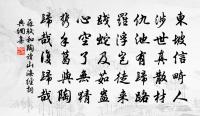 東坡信畸人
涉世真散材
仇池有歸路
羅浮豈徒來
踐蛇及茹蠱
心空了無猜
攜手葛與陶
歸哉復歸哉
蘇軾和陶讀山海經